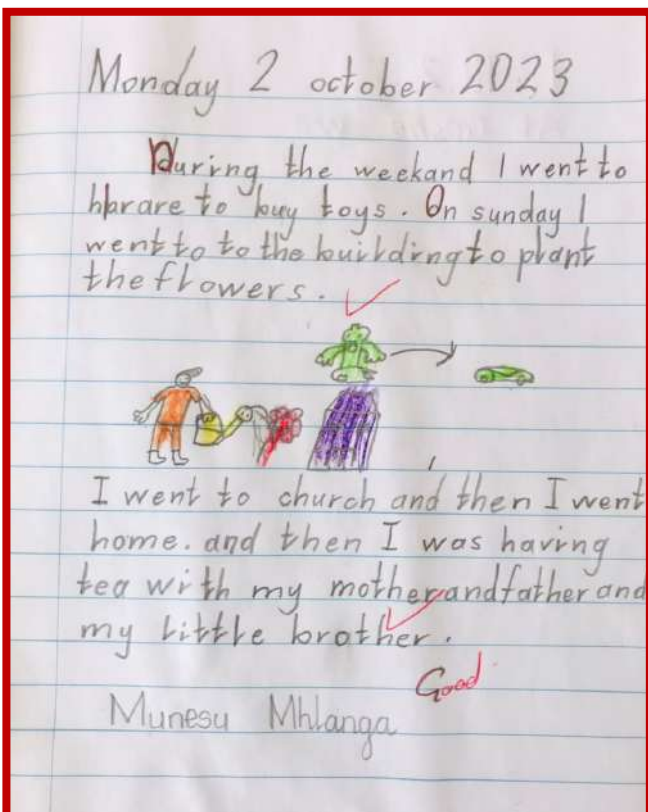 Monday 2 october 2023
During the weekand I went to
hbrare to buy toys. On sunday I
went to to the building to plant
the flowers.
I went to church and then I went
home. and then I was having
tea with my mother and father and
my little brother.
Good
Munesu Mhlanga